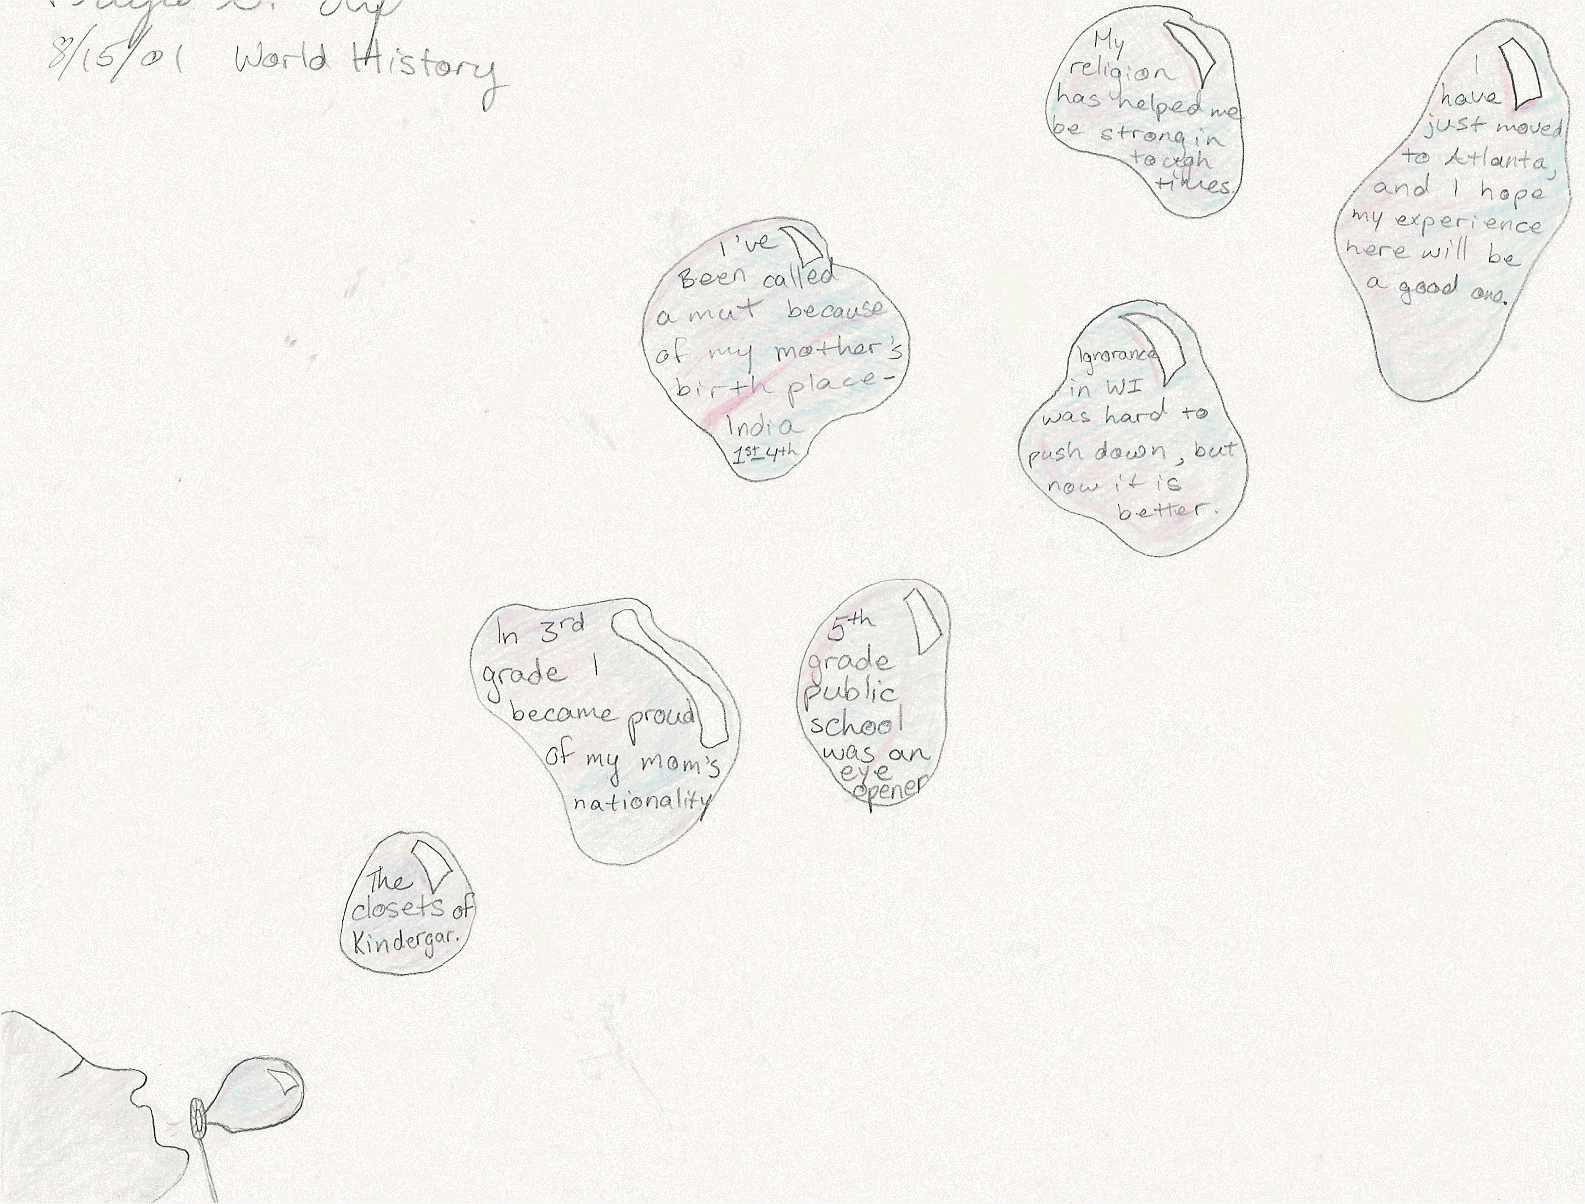 8/15/01 World History
My
religion
has helped me
be strong in
tough
times.
I
have
just moved
to Atlanta,
and I hope
my experience
here will be
a good one.
I've
Been called
a mut because
of my mother's
birth place-
India
1st-4th
Ignorance
in WI
was hard to
push down, but
now it is
better.
In 3rd
grade I
became proud
of my mom's
nationality
5th
grade
public
school
was an
eye
opener
The
closets of
Kindergar.